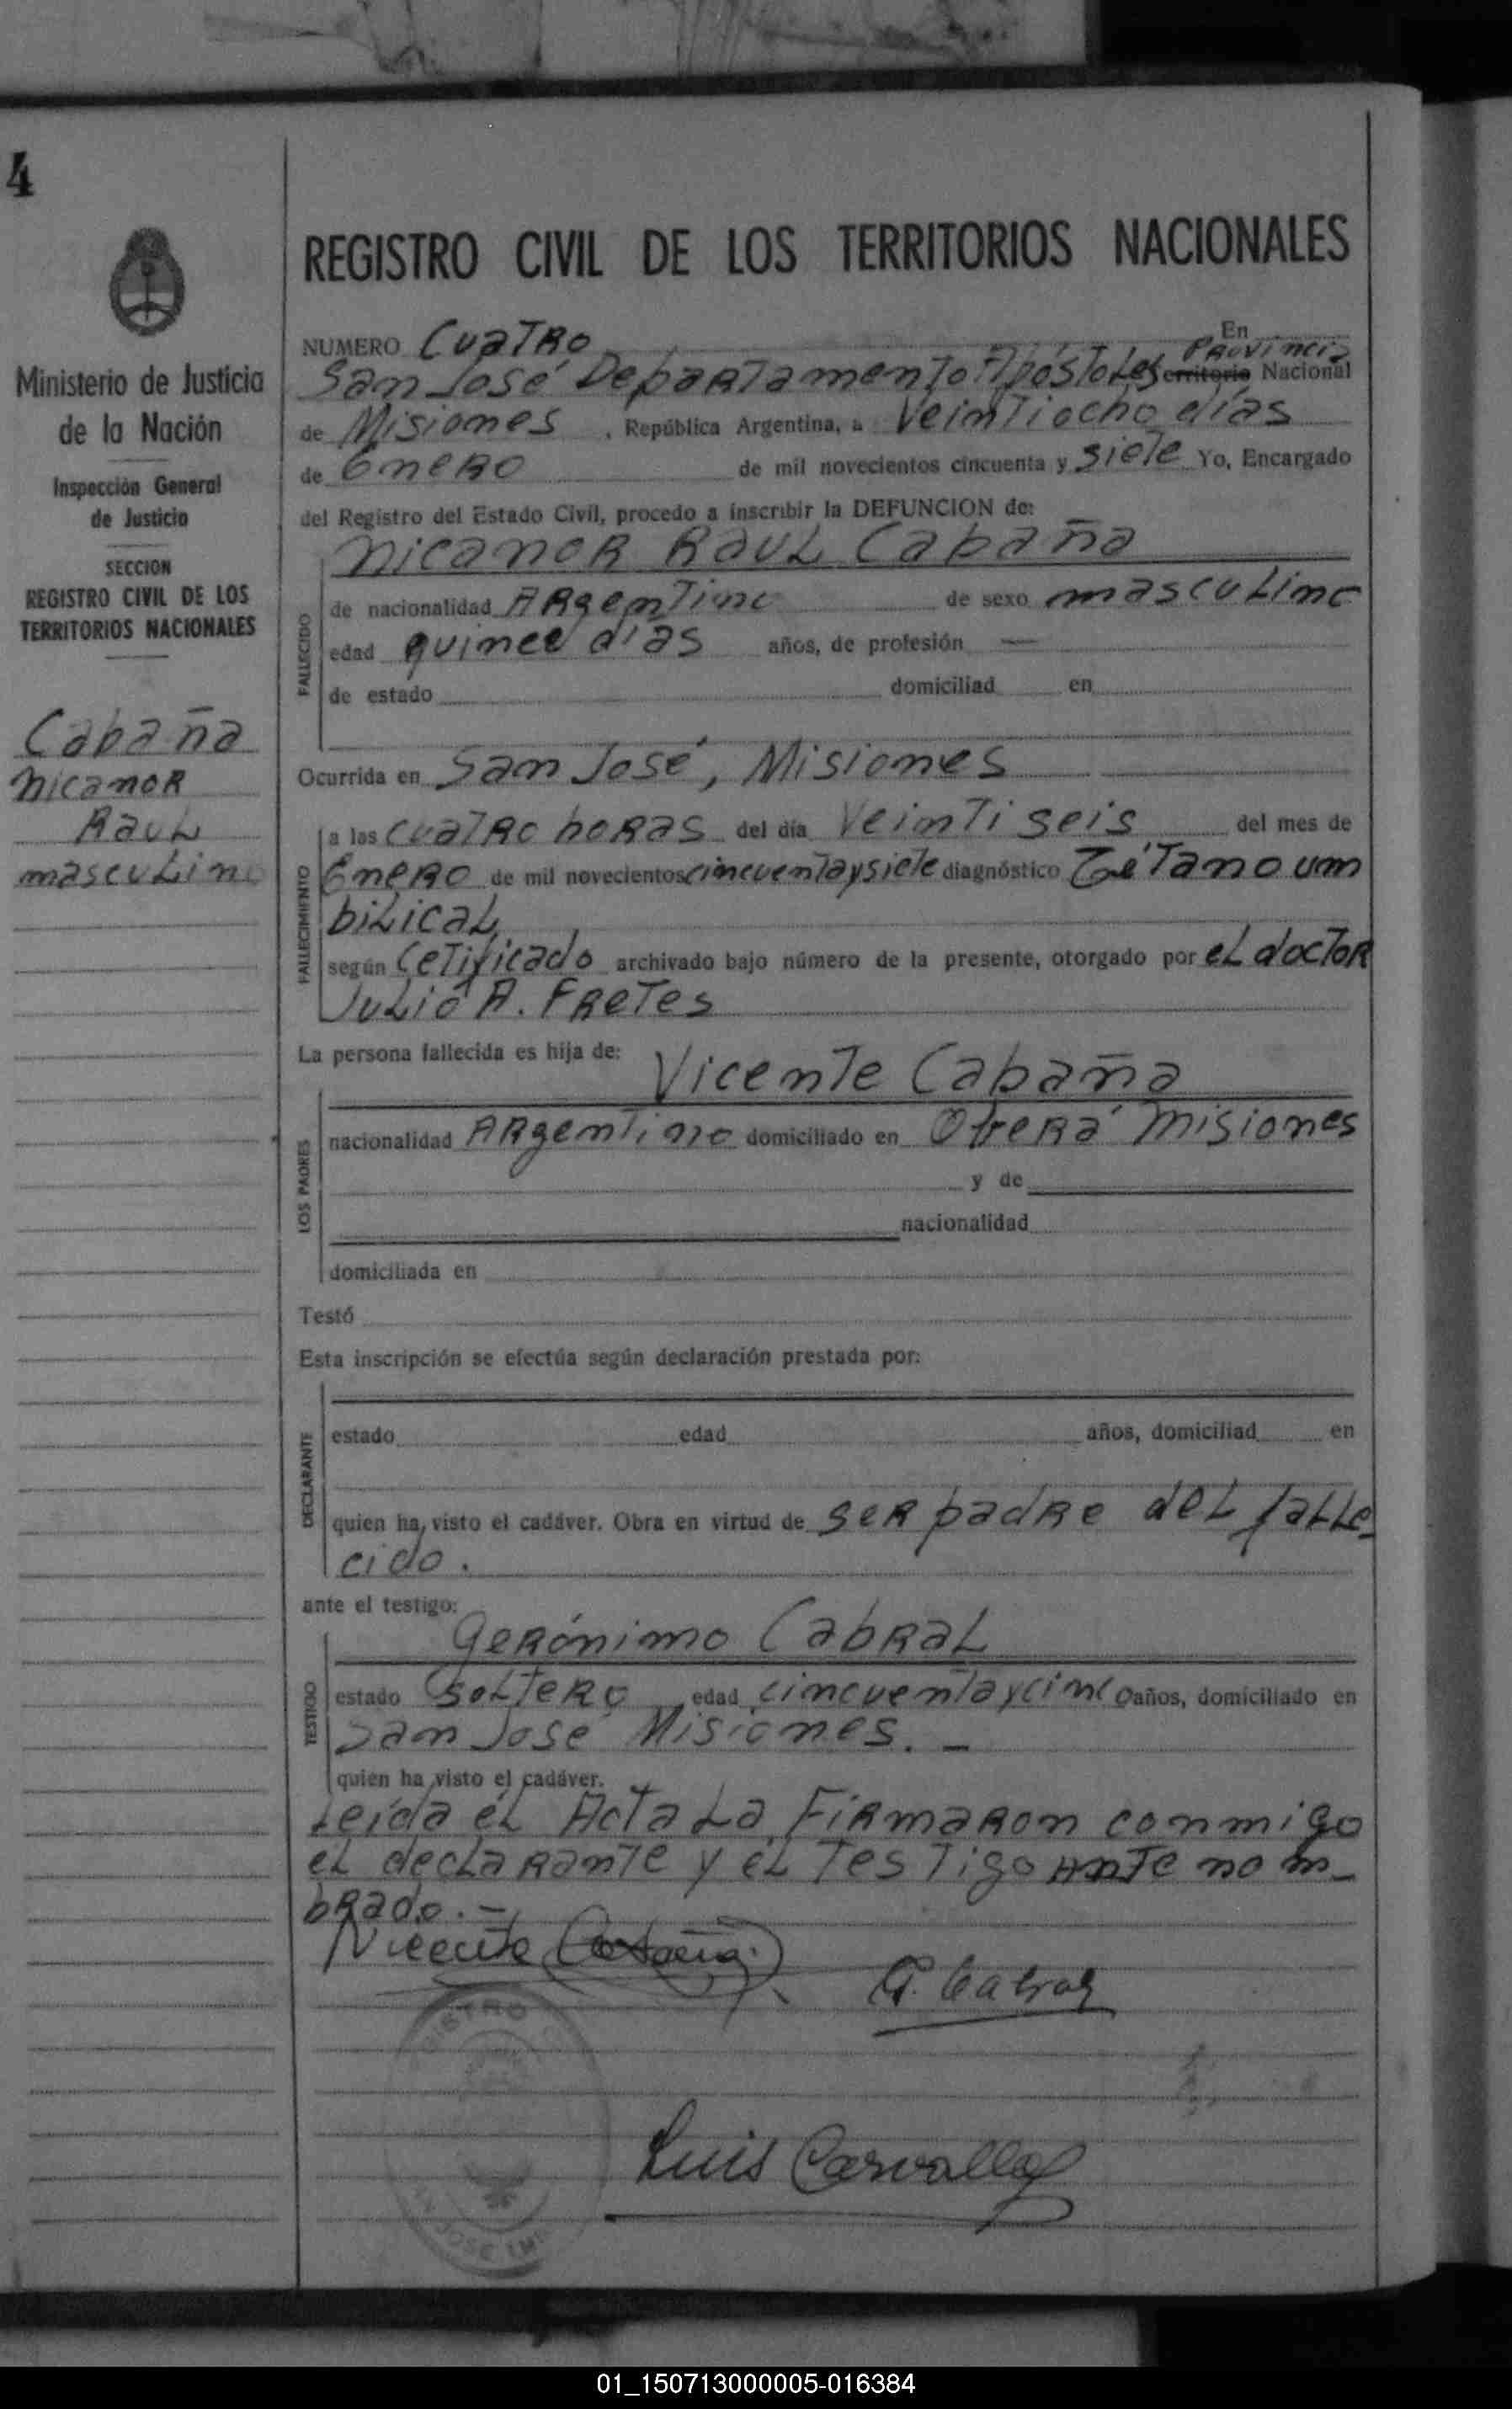 4
Ministerio de Justicia
de la Nación
Inspección General
de Justicia
SECCION
REGISTRO CIVIL DE LOS
TERRITORIOS NACIONALES
Cabaña
Nicanor
Raul
masculino
REGISTRO CIVIL DE LOS TERRITORIOS NACIONALES
NUMERO Cuatro En
Provincia
San José Departamento Apóstoles Territorio Nacional
de Misiones , República Argentina, a Veintiocho días
de Enero de mil novecientos cincuenta y siete Yo, Encargado
del Registro del Estado Civil, procedo a inscribir la DEFUNCION de:
Nicanor Raul Cabaña
FALLECIDO
de nacionalidad Argentino de sexo masculino
edad quince días años, de profesión —
de estado domiciliad en
Ocurrida en San José, Misiones
FALLECIMIENTO
a las cuatro horas del día Veinti seis del mes de
Enero de mil novecientos cincuentaysiete diagnóstico Tétano um
bilical
según Cetificado archivado bajo número de la presente, otorgado por el doctor
Julio A. Fretes
La persona fallecida es hija de:
Vicente Cabaña
LOS PADRES
nacionalidad Argentino domiciliado en Oberá Misiones
y de
nacionalidad
domiciliada en
Testó
Esta inscripción se efectúa según declaración prestada por:
DECLARANTE
estado edad años, domiciliad en
quien ha visto el cadáver. Obra en virtud de ser padre del falle-
cido.
ante el testigo:
Gerónimo Cabral
TESTIGO
estado Soltero edad cincuentaycinco años, domiciliado en
San José Misiones. –
quien ha visto el cadáver.
Leída el Acta La Firmaron conmigo
el declarante y el Testigo ante nom-
brado. –
Vicente Cabaña
G. Cabral
Luis Carvallo
01_150713000005-016384